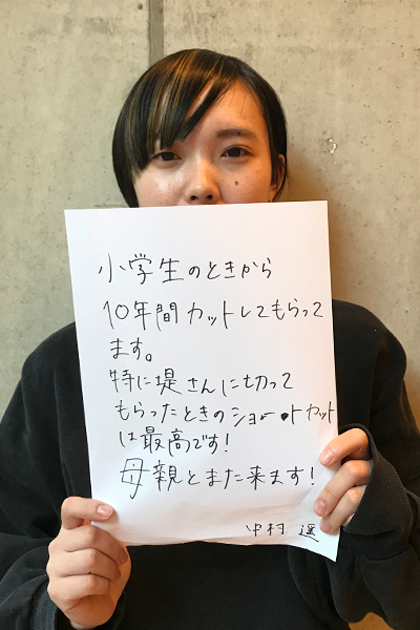 小学生のときから
10年間カットしてもらって
ます。
特に堤さんに切って
もらったときのショートカット
は最高です!
母親とまた来ます!
中村 遥